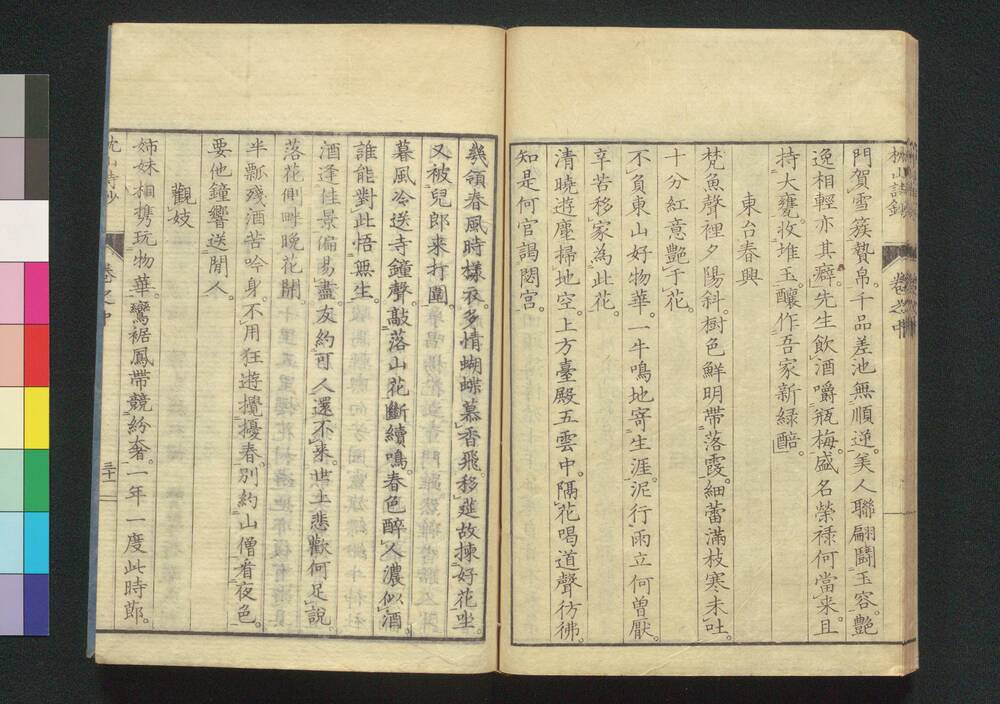 枕山詩鈔
卷之中
門賀雪簇贄帛。千品差池無順逆。美人聯翩鬪玉容。艷
逸相輕亦其癖。先生飲酒嚼瓶梅。盛名榮祿何當來。且
持大甕收堆玉。釀作吾家新綠醅。
東台春興
梵魚聲裡夕陽斜。樹色鮮明帶落霞。細蕾滿枝寒未吐。
十分紅意艷于花。
不負東山好物華。一牛鳴地寄生涯。泥行雨立何曾厭。
辛苦移家為此花。
清曉遊塵掃地空。上方臺殿五雲中。隔花喝道聲彷彿。
知是何官謁閟宮。
幾領春風時樣衣。多情蝴蝶慕香飛。移筵故揀好花坐。
又被兒郎来打圍。
暮風冷送寺鐘聲。敲落山花斷續鳴。春色醉人濃似酒。
誰能對此悟無生。
酒逢佳景偏易盡。友約可人還不来。世上悲歡何足說。
落花側畔晚花開。
半瓢殘酒苦吟身。不用狂遊攪擾春。別約山僧看夜色。
要他鐘響送閒人。
觀妓
姊妹相携玩物華。鸞裾鳳帶競紛奢。一年一度此時節。
枕山詩鈔
卷之中
三十二